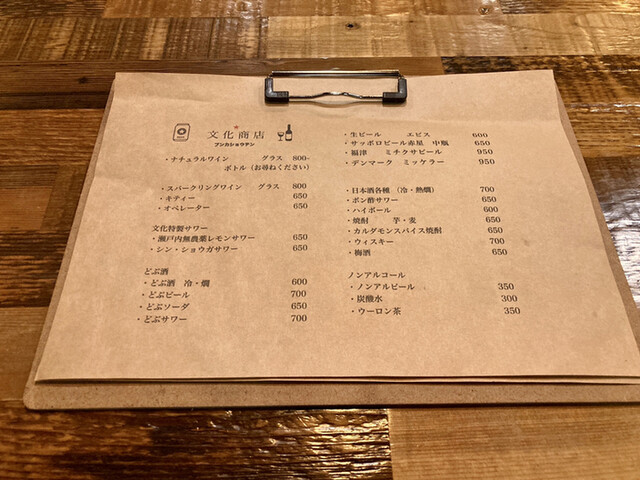 文化商店
ブンカショウテン
・ナチュラルワイン グラス 800-
ボトル（お尋ねください）
・スパークリングワイン グラス 800
・キティー 650
・オペレーター 650
文化特製サワー
・瀬戸内無農薬レモンサワー 650
・シン・ショウガサワー 650
どぶ酒
・どぶ酒 冷・燗 600
・どぶビール 700
・どぶソーダ 650
・どぶサワー 700
・生ビール エビス 600
・サッポロビール赤星 中瓶 650
・福津 ミチクサビール 950
・デンマーク ミッケラー 950
・日本酒各種（冷・熱燗） 700
・ポン酢サワー 650
・ハイボール 600
・焼酎 芋・麦 650
・カルダモンスパイス焼酎 650
・ウィスキー 700
・梅酒 650
ノンアルコール
・ノンアルビール 350
・炭酸水 300
・ウーロン茶 350